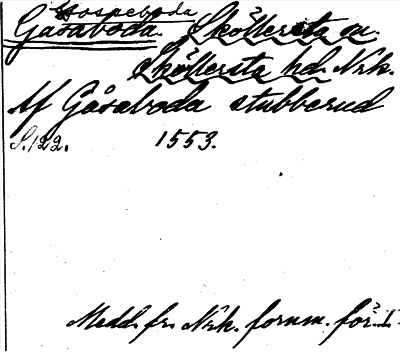 Hospeboda
Gåsaboda. Sköllersta sn.
Sköllersta hd. Nrk.
Af Gåsaboda stubberud
S. 122. 1553.
Medd. fr. Nrk. fornm. för. I.